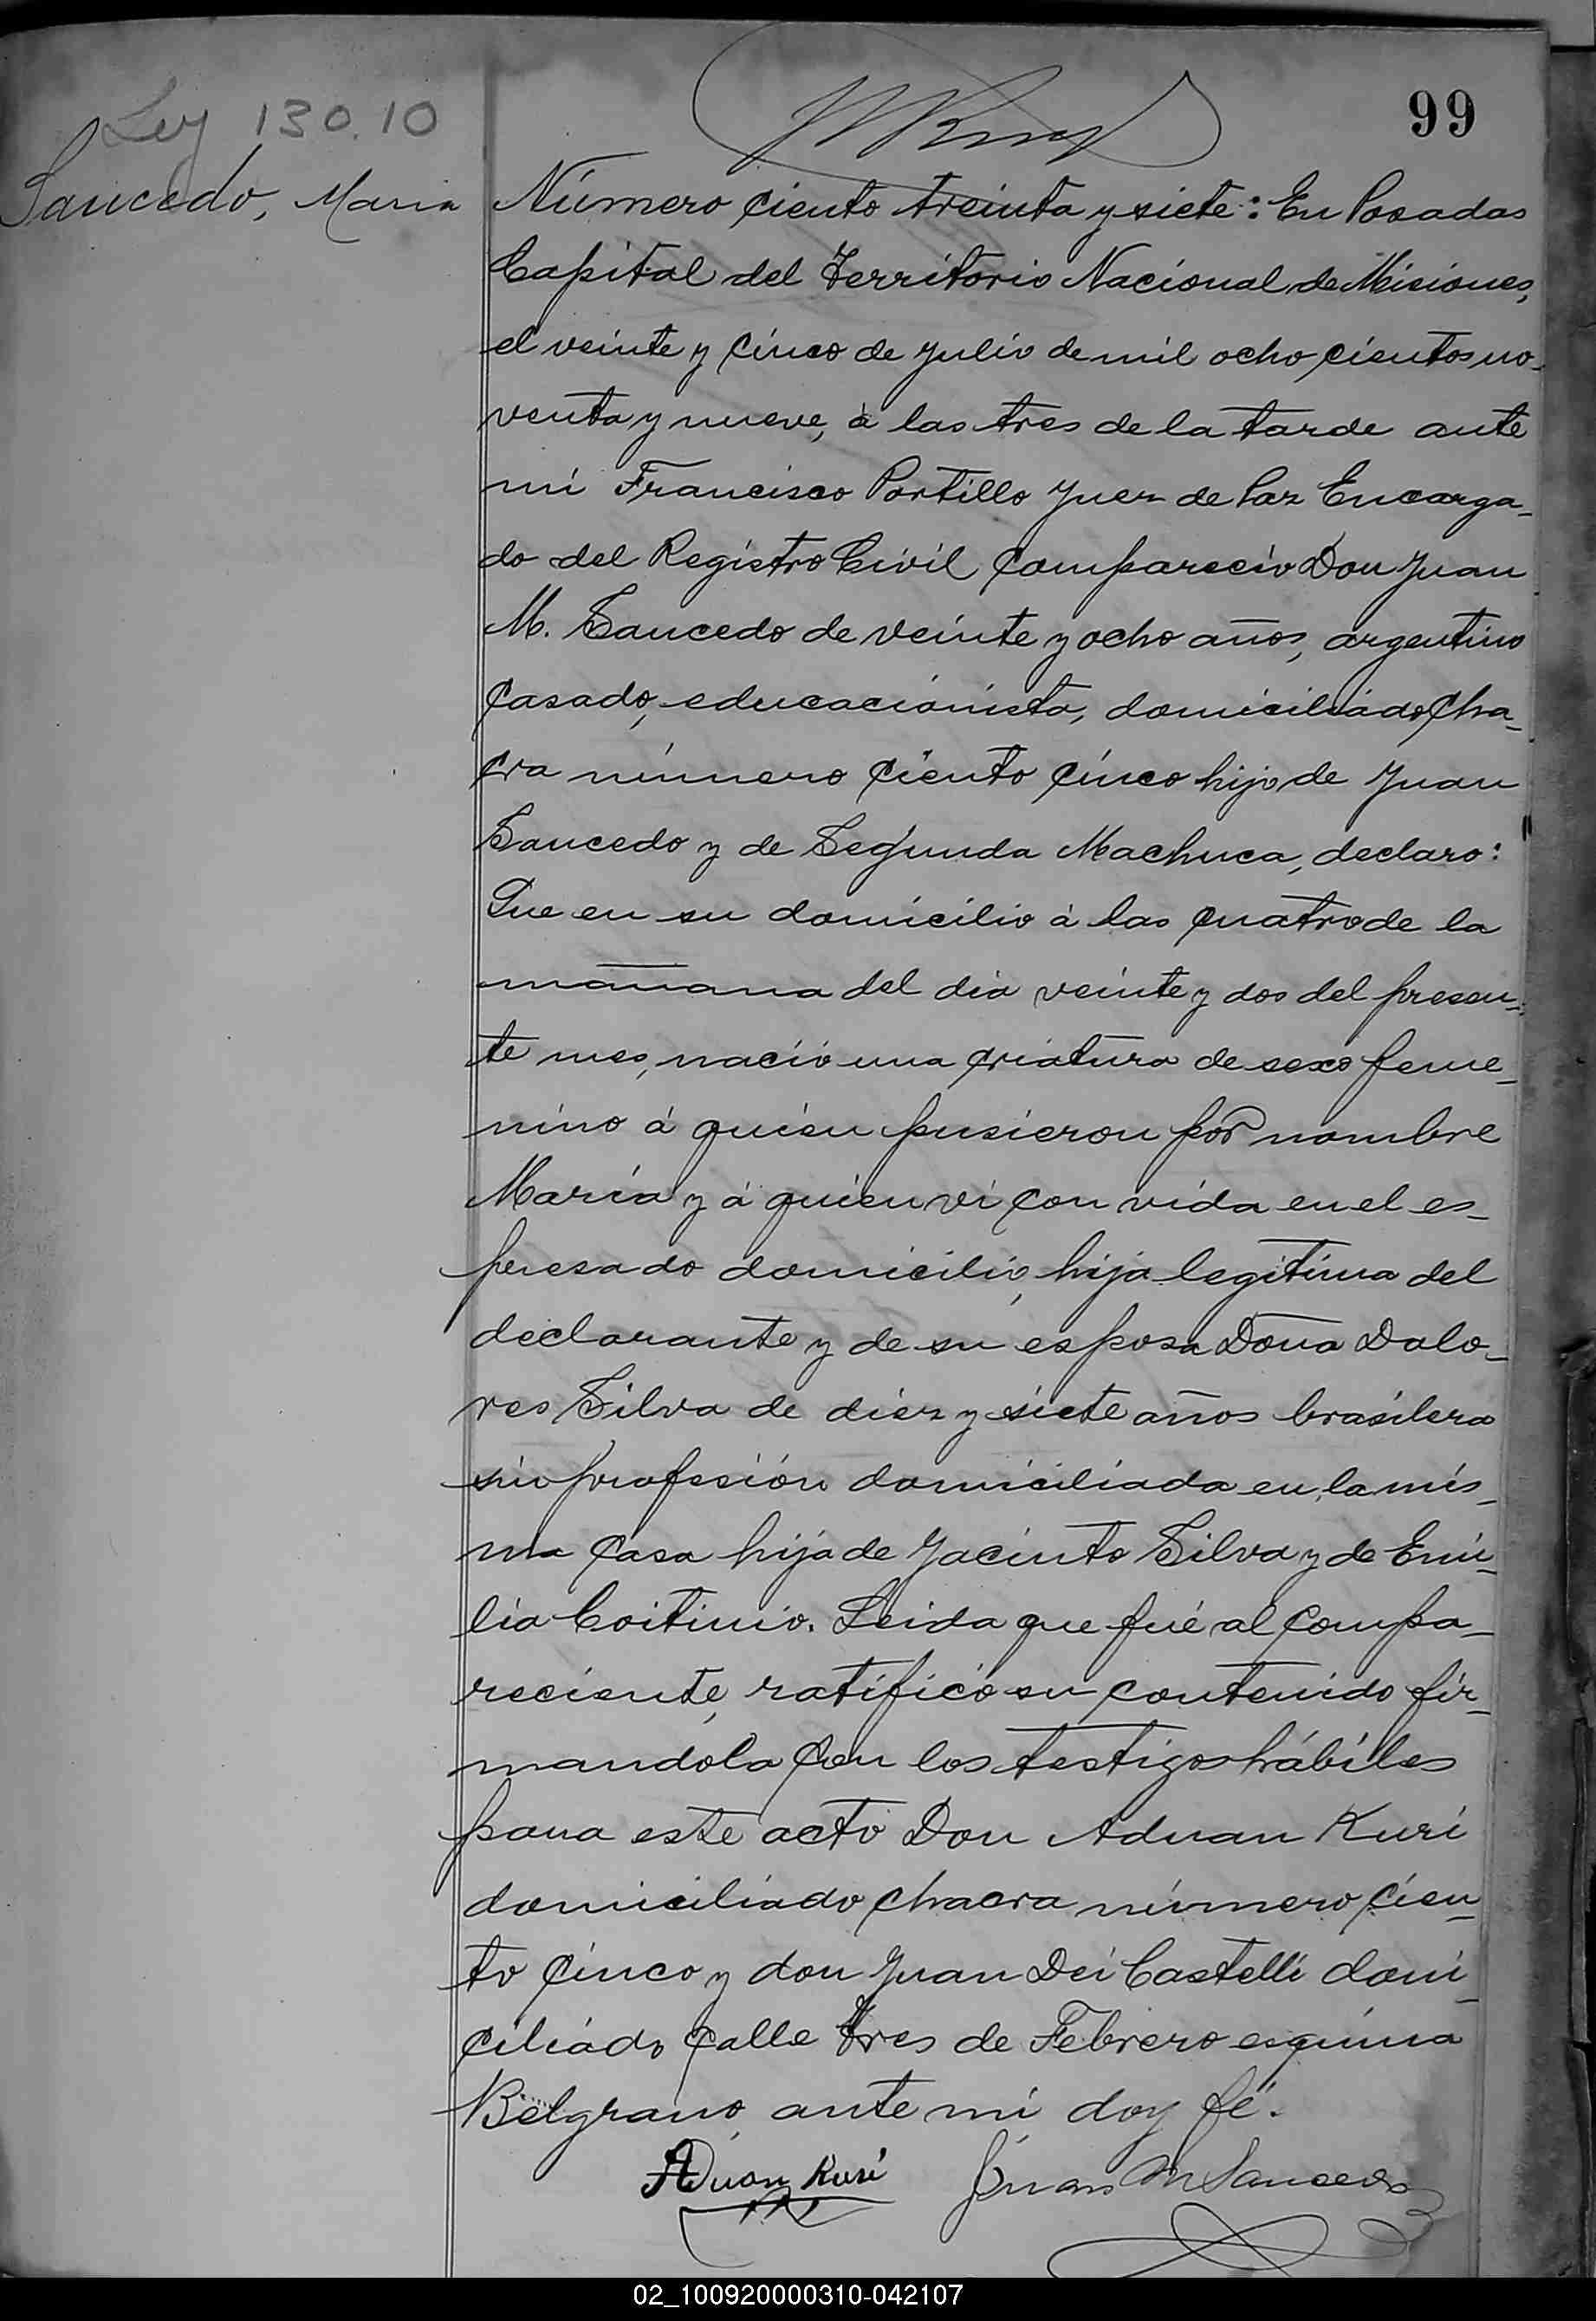 99
Ley 130.10
Saucedo, Maria
Número ciento treinta y siete: En Posadas
Capital del Territorio Nacional de Misiones,
el veinte y cinco de Julio de mil ocho cientos no-
venta y nueve, à las tres de la tarde ante
mi Francisco Portillo Juez de Paz Encarga-
do del Registro Civil compareció Don Juan
M. Saucedo de veinte y ocho años, argentino
casado, educacionista, domiciliado cha-
cra número ciento cinco hijo de Juan
Saucedo y de Segunda Machuca, declaro:
Que en su domicilio à las cuatro de la
mañana del dia veinte y dos del presen-
te mes, nació una criatura de sexo feme-
nino á quien pusieron por nombre
María y á quien vi con vida en el es-
presado domicilio, hija legitima del
declarante y de su esposa Doña Dolo-
res Silva de diez y siete años brasilera
sin profesión domiciliada en la mis-
ma casa hija de Jacinto Silva y de Emi-
lia Coitinio. Leida que fué al compa-
reciente, ratificó su contenido fir-
mandola con los testigos hábiles
para este acto Don Aduan Kuri
domiciliado chacra número cien-
to cinco y don Juan Dei Castelli domi-
ciliado calle Tres de Febrero esquina
Belgrano, ante mi doy fé.
Aduan Kuri Juan M Saucedo
02_100920000310-042107